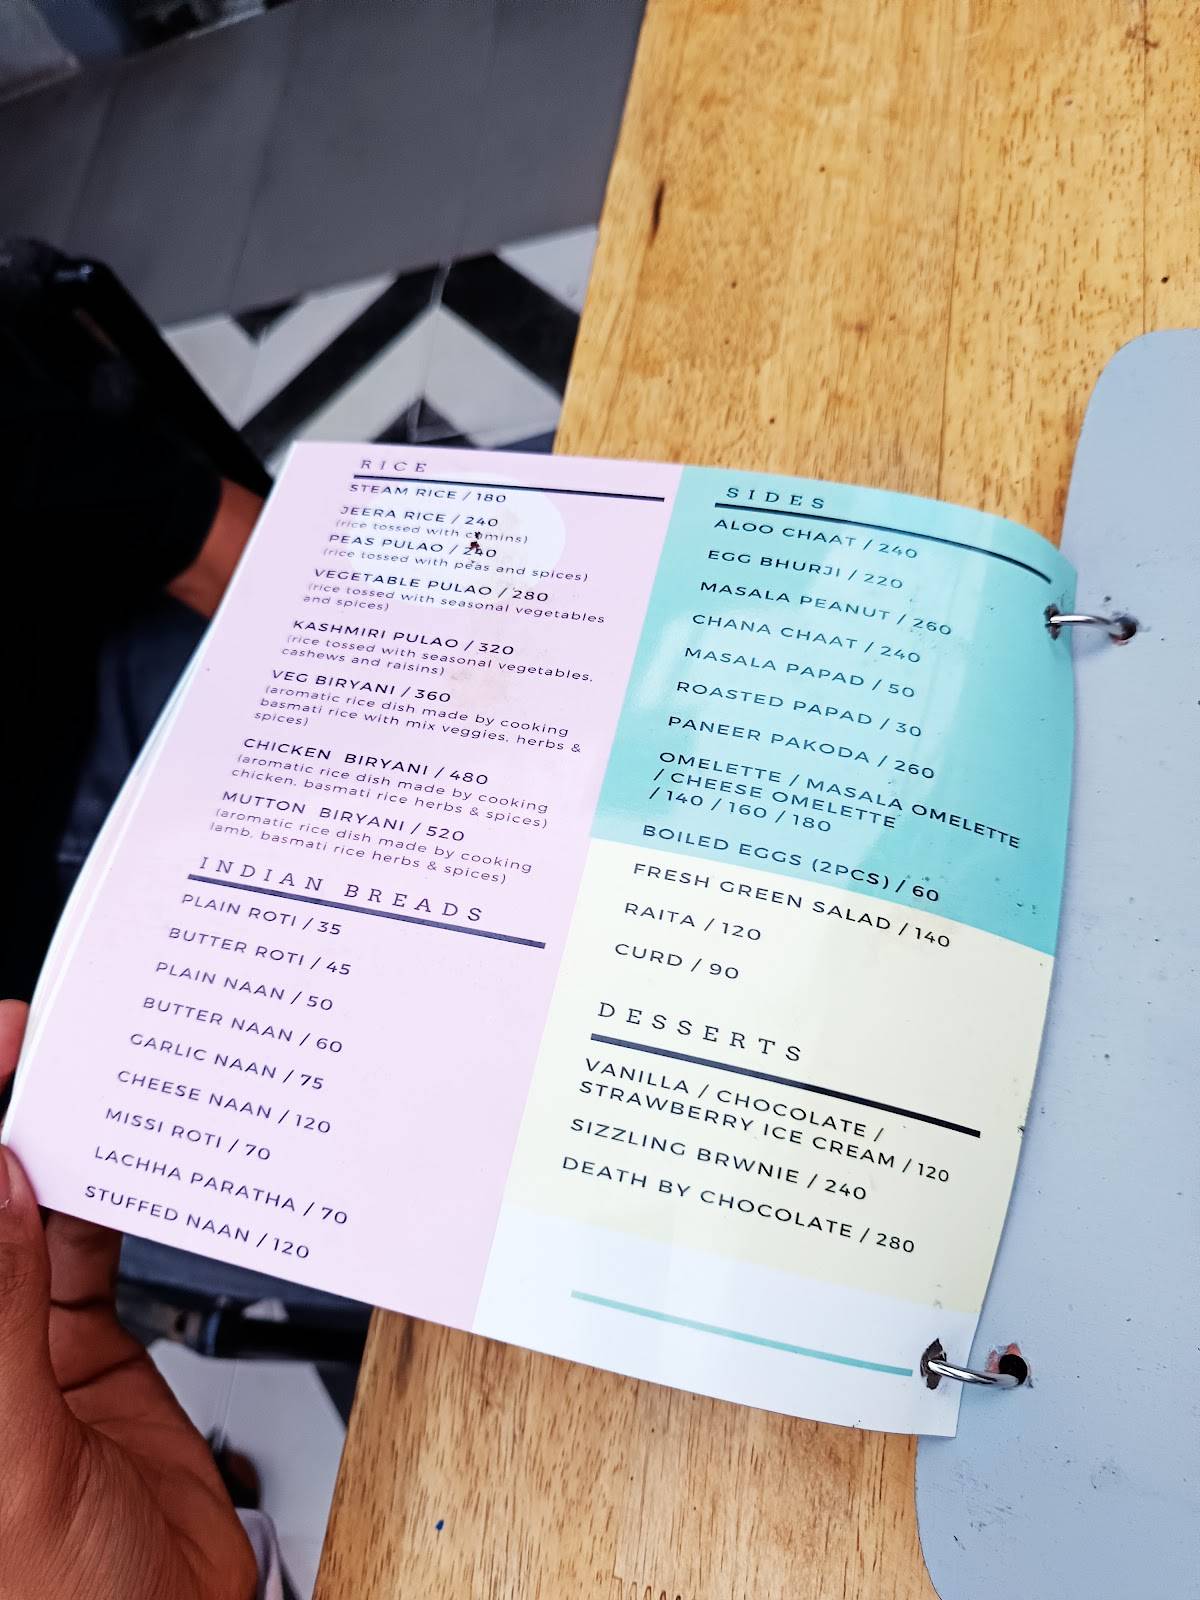 RICE
STEAM RICE / 180
JEERA RICE / 240
(rice tossed with cumins)
PEAS PULAO / 240
(rice tossed with peas and spices)
VEGETABLE PULAO / 280
(rice tossed with seasonal vegetables
and spices)
KASHMIRI PULAO / 320
(rice tossed with seasonal vegetables,
cashews and raisins)
VEG BIRYANI / 360
(aromatic rice dish made by cooking
basmati rice with mix veggies, herbs &
spices)
CHICKEN BIRYANI / 480
(aromatic rice dish made by cooking
chicken, basmati rice herbs & spices)
MUTTON BIRYANI / 520
(aromatic rice dish made by cooking
lamb, basmati rice herbs & spices)
INDIAN BREADS
PLAIN ROTI / 35
BUTTER ROTI / 45
PLAIN NAAN / 50
BUTTER NAAN / 60
GARLIC NAAN / 75
CHEESE NAAN / 120
MISSI ROTI / 70
LACHHA PARATHA / 70
STUFFED NAAN / 120
SIDES
ALOO CHAAT / 240
EGG BHURJI / 220
MASALA PEANUT / 260
CHANA CHAAT / 240
MASALA PAPAD / 50
ROASTED PAPAD / 30
PANEER PAKODA / 260
OMELETTE / MASALA OMELETTE
/ CHEESE OMELETTE
/ 140 / 160 / 180
BOILED EGGS (2PCS) / 60
FRESH GREEN SALAD / 140
RAITA / 120
CURD / 90
DESSERTS
VANILLA / CHOCOLATE /
STRAWBERRY ICE CREAM / 120
SIZZLING BRWNIE / 240
DEATH BY CHOCOLATE / 280